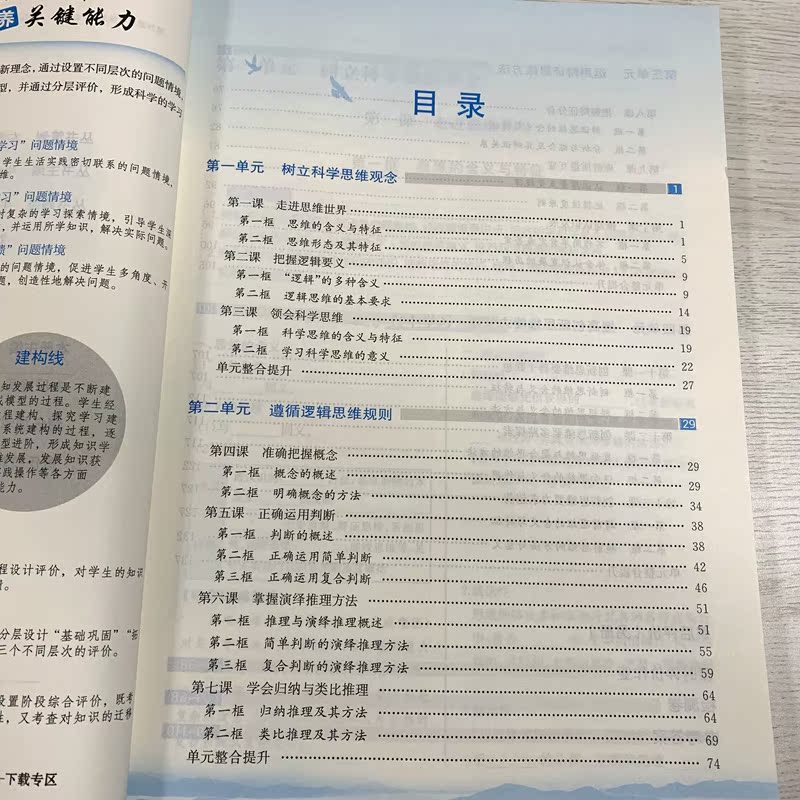 养 关键能力
新理念，通过设置不同层次的问题情境，
型，并通过分层评价，形成科学的学习
学习”问题情境
学生生活实践密切联系的问题情境，
维。
习”问题情境
对复杂的学习探索情境，引导学生深
，并运用所学知识，解决实际问题。
问题情境
的问题情境，促进学生多角度、开
题，创造性地解决问题。
建构线
知发展过程是不断建
模型的过程。学生经
程建构、探究学习建
系统建构的过程，逐
型进阶，形成知识学
发展，发展知识获
践操作等各方面
能力。
程设计评价，对学生的知识
分层设计“基础巩固”
三个不同层次的评价。
设置阶段综合评价，既考
性，又考查对知识的迁移
下载专区
目录
第一单元 树立科学思维观念 1
第一课 走进思维世界 1
第一框 思维的含义与特征 1
第二框 思维形态及其特征 5
第二课 把握逻辑要义 9
第一框 “逻辑”的多种含义 9
第二框 逻辑思维的基本要求 14
第三课 领会科学思维 19
第一框 科学思维的含义与特征 19
第二框 学习科学思维的意义 22
单元整合提升 27
第二单元 遵循逻辑思维规则 29
第四课 准确把握概念 29
第一框 概念的概述 29
第二框 明确概念的方法 34
第五课 正确运用判断 38
第一框 判断的概述 38
第二框 正确运用简单判断 42
第三框 正确运用复合判断 46
第六课 掌握演绎推理方法 51
第一框 推理与演绎推理概述 51
第二框 简单判断的演绎推理方法 55
第三框 复合判断的演绎推理方法 59
第七课 学会归纳与类比推理 64
第一框 归纳推理及其方法 64
第二框 类比推理及其方法 69
单元整合提升 74